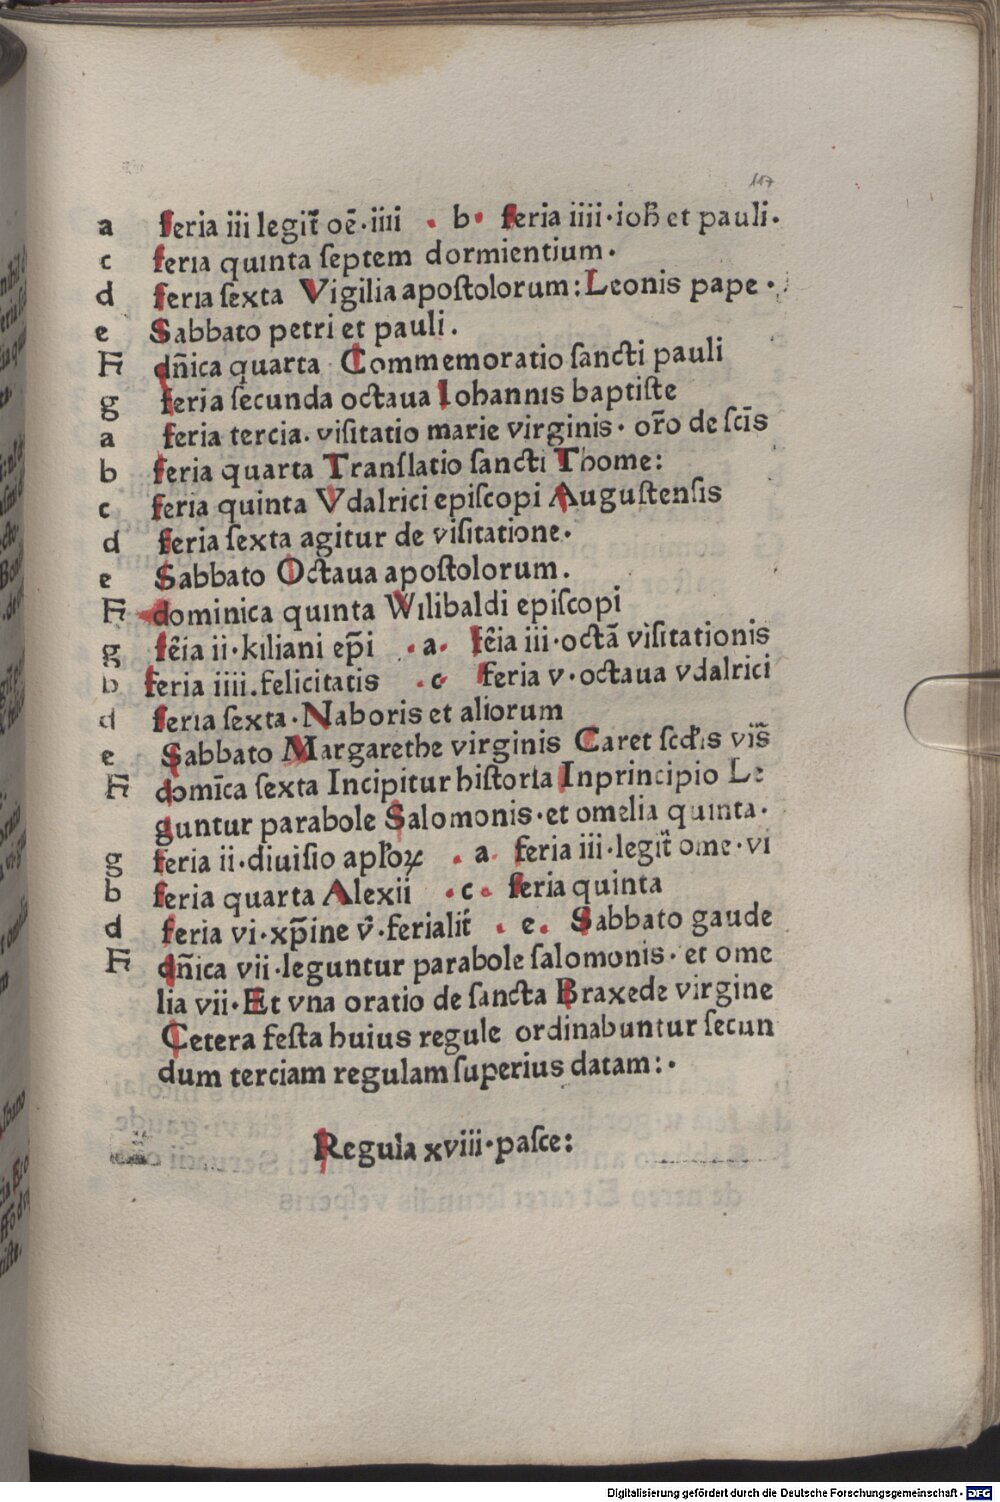 117
a feria iii legit᷑ oē·iiii · b· feria iiii·ioh̄ et pauli.
c feria quinta ſeptem dormientium.
d feria ſexta Vigilia apoſtolorum: Leonis pape ·
e Sabbato petri et pauli.
F dn̄ica quarta Commemoratio ſancti pauli
g feria ſecunda octaua Iohannis baptiſte
a feria tercia. viſitatio marie virginis· or̄o de ſcīs
b feria quarta Tranſlatio ſancti Thome:
c feria quinta Vdalrici epiſcopi Auguſtenſis
d feria ſexta agitur de viſitatione.
e Sabbato Octaua apoſtolorum.
F dominica quinta Wilibaldi epiſcopi
g fēia ii·kiliani ep̄i ·a· fēia iii·octā viſitationis
b feria iiii.felicitatis ·c· feria v·octaua vdalrici
d feria ſexta·Naboris et aliorum
e Sabbato Margarethe virginis Caret ſcd̄is viſ̄
F domīca ſexta Incipitur hiſtoria Inprincipio Le
guntur parabole Salomonis·et omelia quinta·
g feria ii·diuiſio apl̄oꝝ · a· feria iii·legit᷑ ome·vi
b feria quarta Alexii ·c· feria quinta
d feria vi·xp̄ine v̄·ferialit᷑ · e. Sabbato gaude
F dn̄ica vii·leguntur parabole ſalomonis· et ome
lia vii·Et vna oratio de ſancta Braxede virgine
Cetera feſta huius regule ordinabuntur ſecun
dum terciam regulam ſuperius datam:·
Regula xviii·paſce:
Digitalisierung gefördert durch die Deutsche Forschungsgemeinschaft - DFG